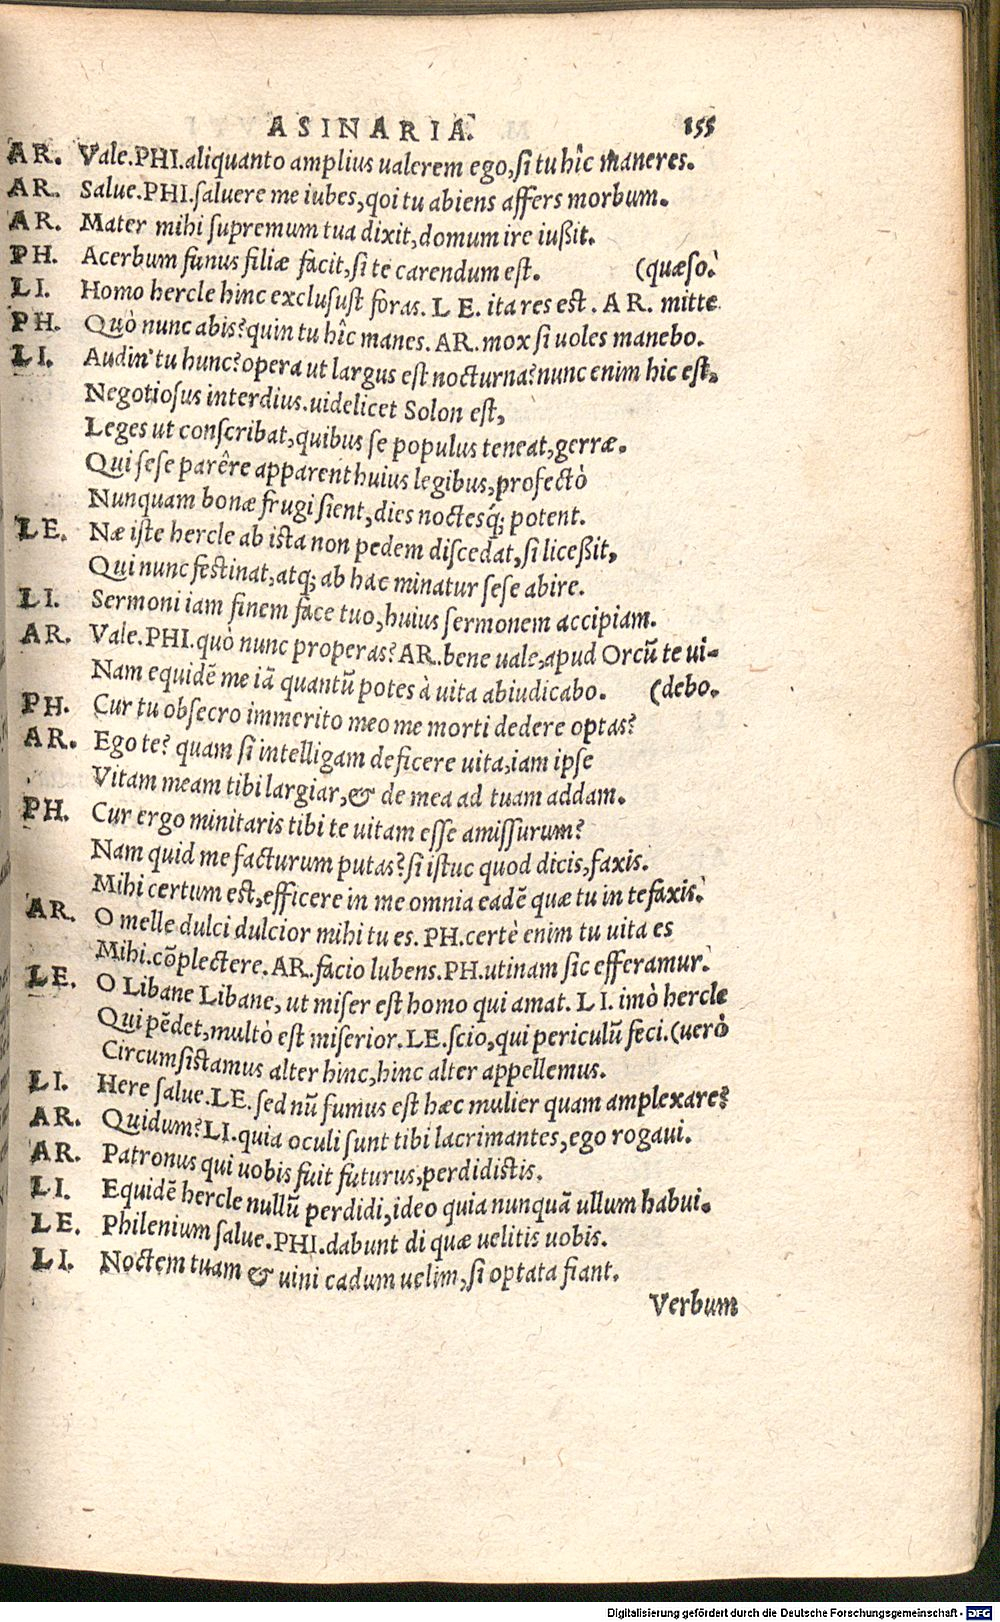 ASINARIA. 155
AR. Vale.PHI.aliquanto amplius ualerem ego,si tu hîc maneres.
AR. Salue.PHI.saluere me iubes,qoi tu abiens affers morbum.
AR. Mater mihi supremum tua dixit,domum ire iußit.
PH. Acerbum funus filiæ facit,si te carendum est. (quæso.
LI. Homo hercle hinc exclusust foras. LE. ita res est. AR. mitte
PH. Quò nunc abis?quin tu hîc manes. AR. mox si uoles manebo.
LI. Audin' tu hunc?opera ut largus est nocturna?nunc enim hic est,
Negotiosus interdius.uidelicet Solon est,
Leges ut conscribat,quibus se populus teneat,gerræ.
Qui sese parêre apparent huius legibus,profectò
Nunquam bonæ frugi sient,dies noctesq́; potent.
LE. Næ iste hercle ab ista non pedem discedat,si liceßit,
Qui nunc festinat,atq; ab hac minatur sese abire.
LI. Sermoni iam finem face tuo,huius sermonem accipiam.
AR. Vale.PHI.quò nunc properas?AR.bene uale,apud Orcũ te ui-
Nam equidẽ me iã quantũ potes à uita abiudicabo. (debo.
PH. Cur tu obsecro immerito meo me morti dedere optas?
AR. Ego te? quam si intelligam deficere uita,iam ipse
Vitam meam tibi largiar,& de mea ad tuam addam.
PH. Cur ergo minitaris tibi te uitam esse amissurum?
Nam quid me facturum putas?si istuc quod dicis,faxis.
Mihi certum est,efficere in me omnia eadẽ quæ tu in te faxis.
AR. O melle dulci dulcior mihi tu es. PH.certè enim tu uita es
Mihi.cõplectere.AR.facio lubens.PH.utinam sic efferamur.
LE. O Libane Libane,ut miser est homo qui amat. LI. imò hercle
Qui pẽdet,multò est miserior.LE.scio,qui periculũ feci.(uerò
Circumsistamus alter hinc,hinc alter appellemus.
LI. Here salue.LE.sed nũ fumus est hæc mulier quam amplexare?
AR. Quidum?LI.quia oculi sunt tibi lacrimantes,ego rogaui.
AR. Patronus qui uobis fuit futurus,perdidistis.
LI. Equidẽ hercle nullũ perdidi,ideo quia nunquã ullum habui.
LE. Philenium salue.PHI.dabunt di quæ uelitis uobis.
LI. Noctem tuam & uini cadum uelim,si optata fiant.
Verbum
Digitalisierung gefördert durch die Deutsche Forschungsgemeinschaft - DFG